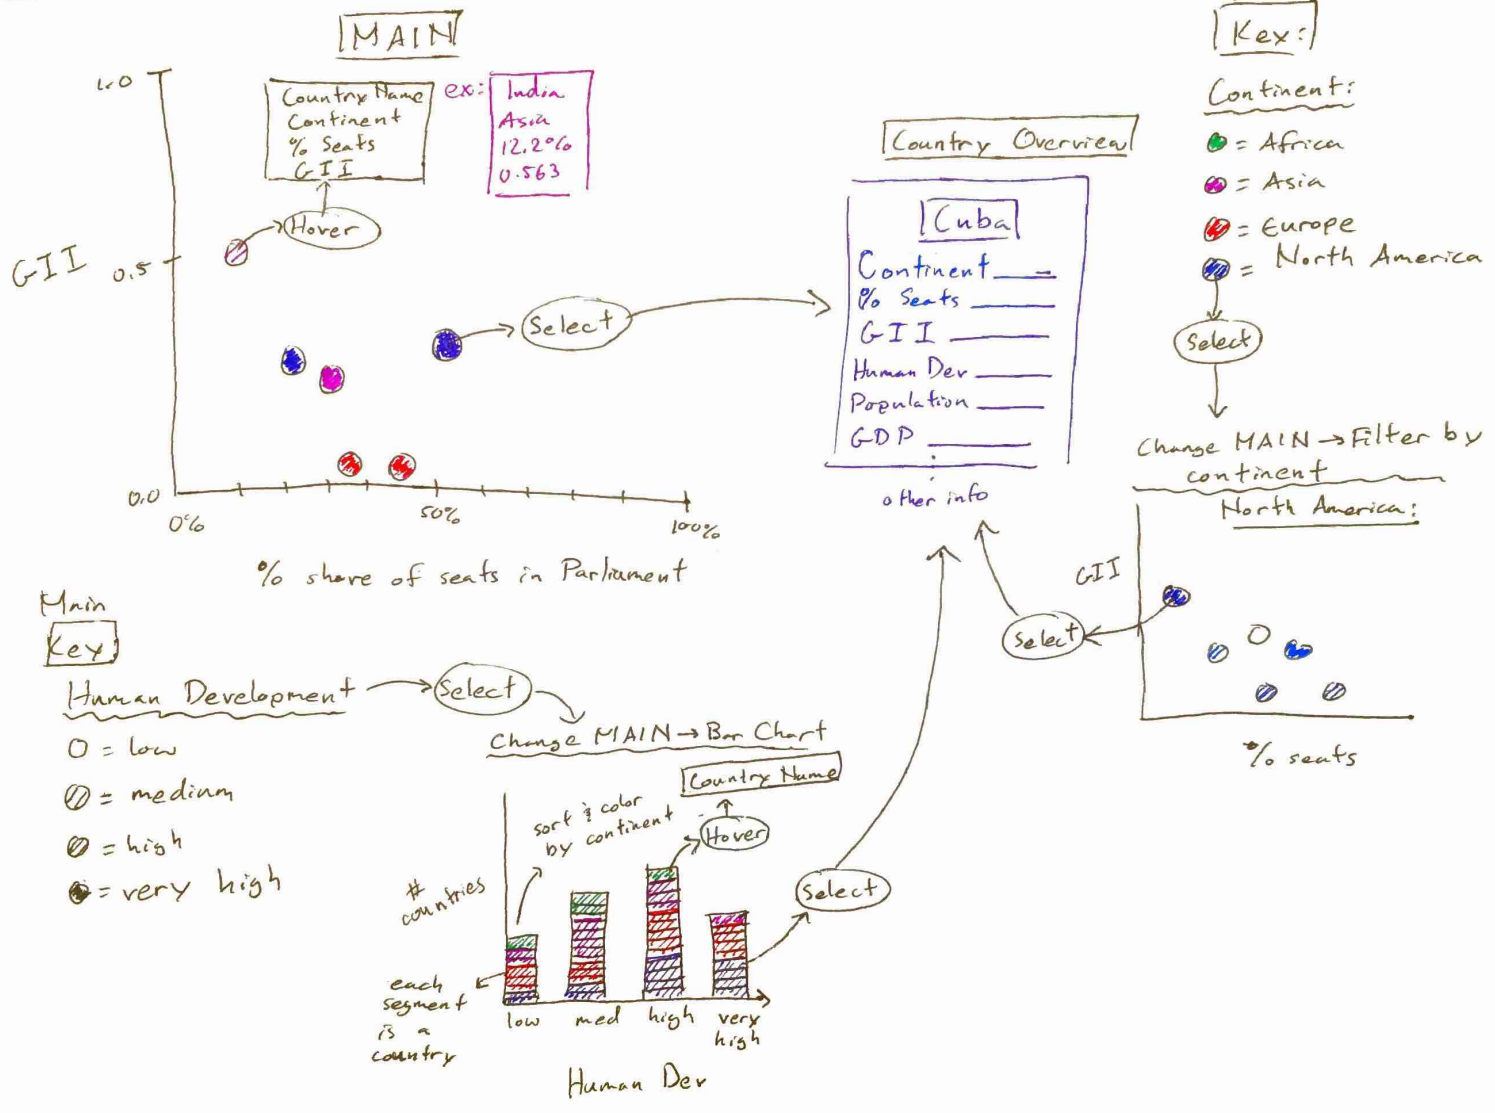 MAIN
1.0
Country Name
Continent
% Seats
GII
ex:
India
Asia
12.2%
0.563
Hover
GII
0.5
Select
0.0
0%
50%
100%
% share of seats in Parliament
Country Overview
Cuba
Continent
% Seats
GII
Human Dev
Population
GDP
other info
Key:
Continent:
= Africa
= Asia
= Europe
= North America
Select
Change MAIN → Filter by
continent
North America:
GII
Select
% seats
Main
Key:
Human Development
Select
= low
= medium
= high
= very high
Change MAIN → Bar Chart
Country Name
Hover
sort & color
by continent
Select
#
countries
each
segment
is a
country
low
med
high
very
high
Human Dev